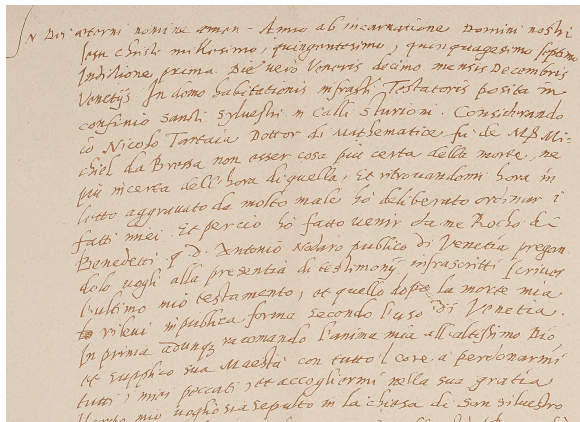 In Dei aeterni nomine amen - Anno ab incarnatione Domini nostri
Iesu christi millesimo, quingentesimo, quinquagesimo septimo
Inditione prima. Die vero Veneris decimo mensis Decembris
Venetijs In domo habitationis infrascti Testatoris posita in
confinio Sancti Sylvestri in calli Sturioni. Considerando
io Nicolo Tartaia Dottor di Mathematice fu de M. Mi-
chiel da Bressa non esser cosa piu certa della morte, ne
piu incerta dell'hora di quella, Et ritrovandomi hora in
letto aggravato da molto male hò deliberato ordinar i
fatti miei. Et perciò hò fatto venir da me Rocho de
Benedetti q. d. Antonio Nodaro publico di Venetia pregan-
dolo vogli alla presentia di testimonij infrascritti scriver
l'ultimo mio testamento, et quello dopò la morte mia
rilevi in publica forma secondo l'uso di Venetia.
In prima adunq racomando l'anima mia all'altissimo Dio
et supplico sua Maestà con tutto l core à perdonarmi
tutti i miei peccati, et accogliermi nella sua gratia
mio voglio sia sepulto in la chiesa di San Silvestro